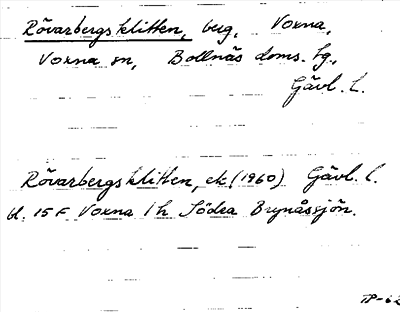 Rövarbergsklitten, berg, Voxna,
Voxna sn, Bollnäs doms. tg.,
Gävl. l.
Rövarbergsklitten, ek (1960) Gävl. l.
bl. 15 F Voxna 1 h Södra Brynåssjön.
TP-62